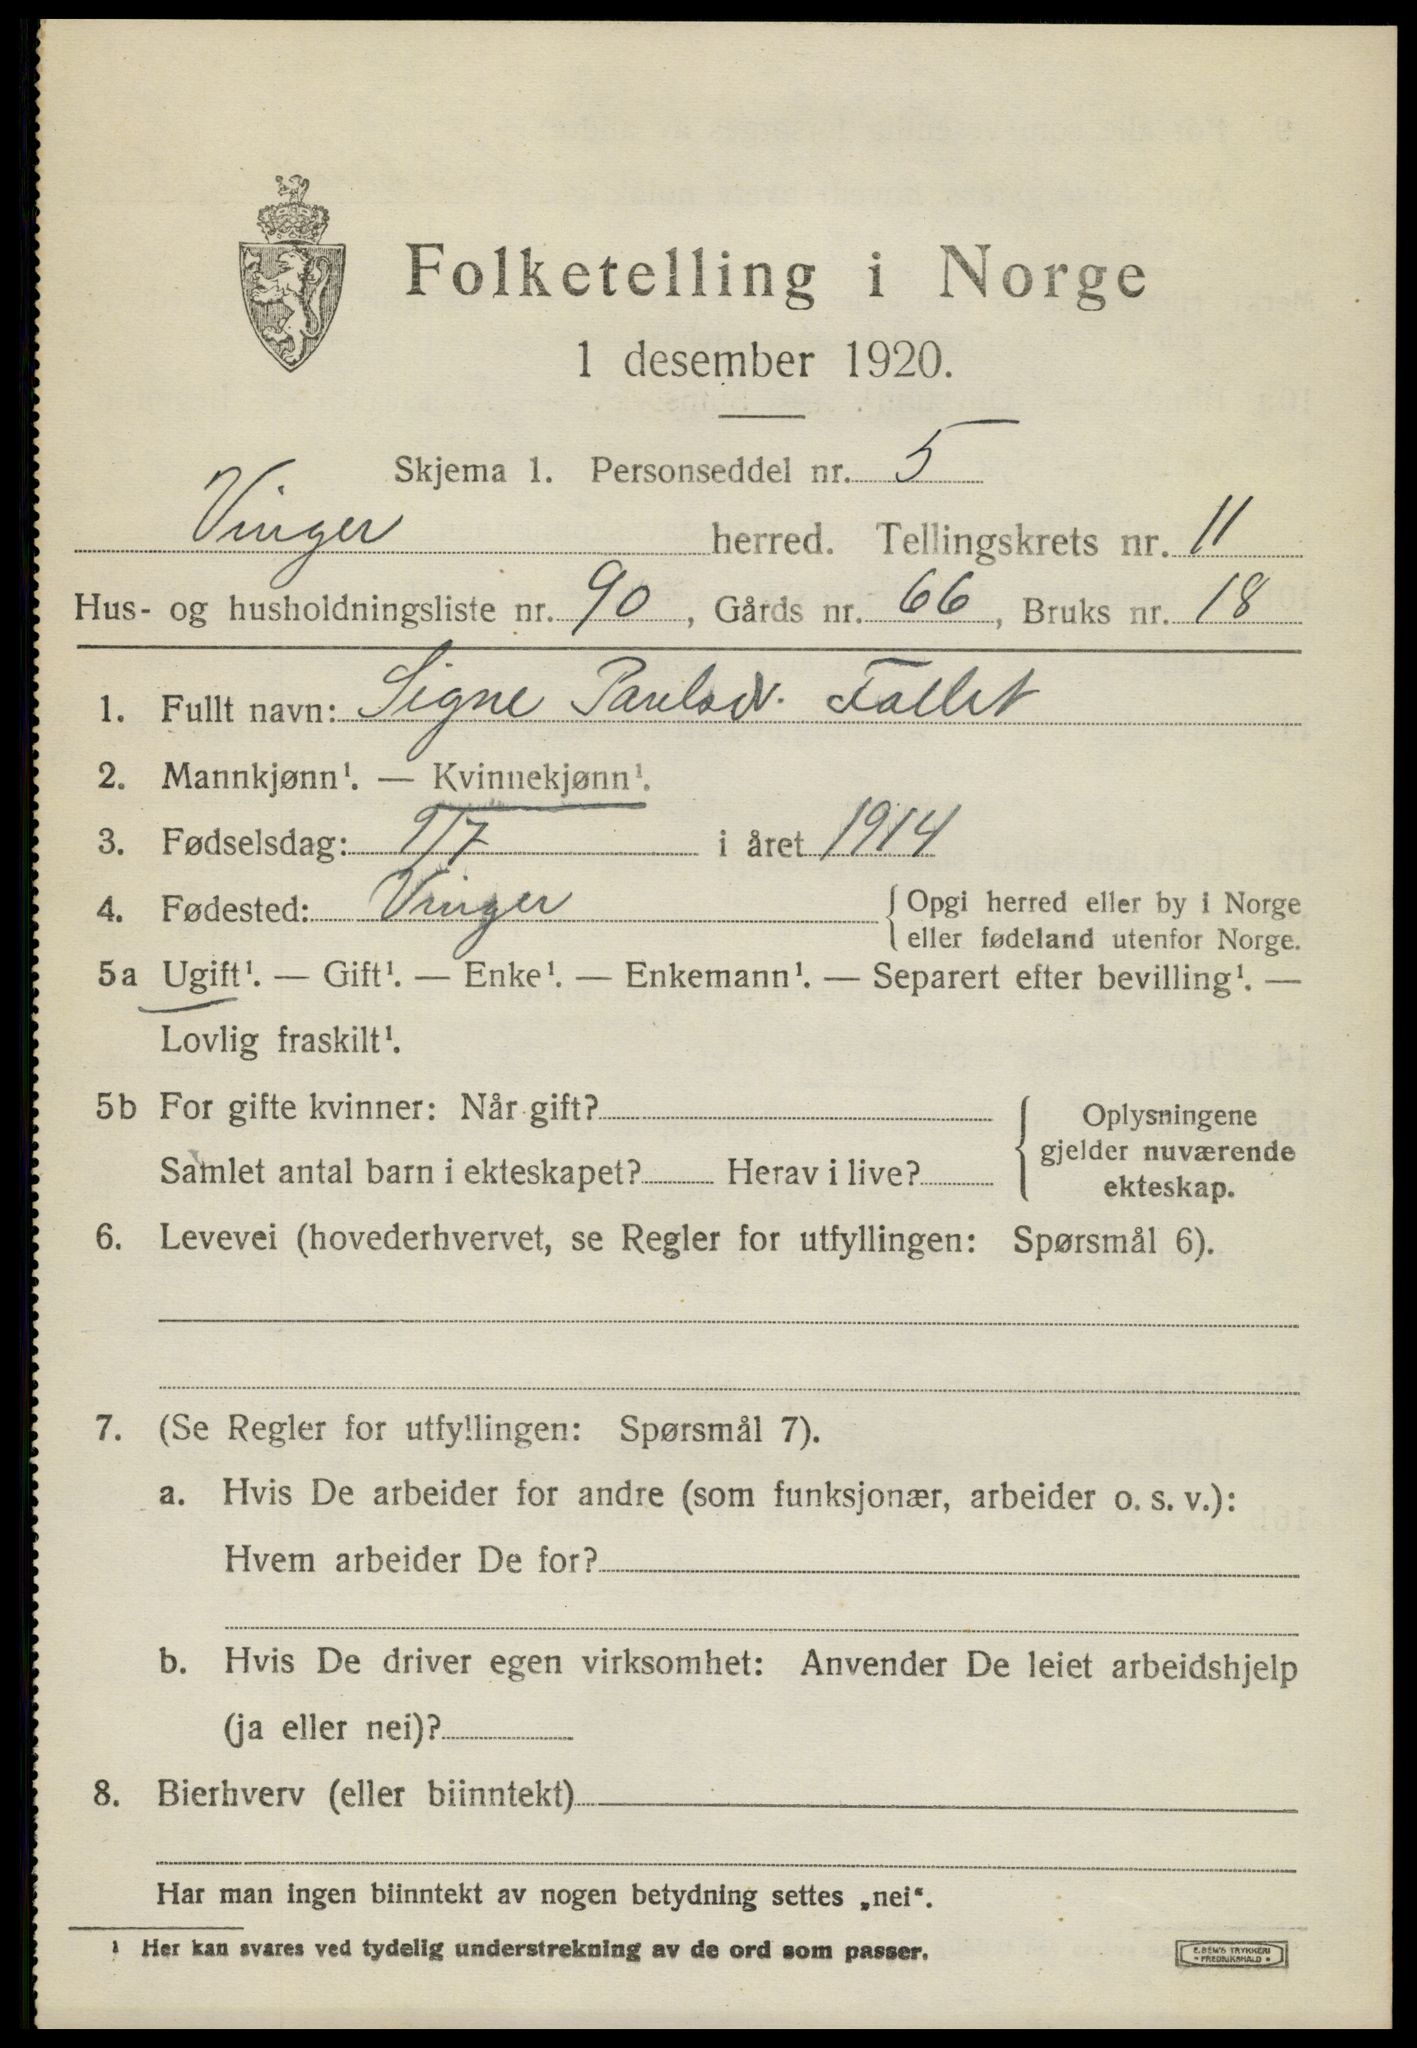 Folketelling i Norge
1 desember 1920.
Skjema 1. Personseddel nr. 5
Vinger herred. Tellingskrets nr. 11
Hus- og husholdningsliste nr. 90, Gårds nr. 66, Bruks nr. 18
1. Fullt navn: Signe Paulsd. Fallet
2. Mannkjønn¹. — Kvinnekjønn¹.
3. Fødselsdag: 9/7 i året 1914
4. Fødested: Vinger { Opgi herred eller by i Norge
eller fødeland utenfor Norge.
5a Ugift¹. — Gift¹. — Enke¹. — Enkemann¹. — Separert efter bevilling¹. —
Lovlig fraskilt¹.
5b For gifte kvinner: Når gift?
Samlet antal barn i ekteskapet? Herav i live?
{ Oplysningene
gjelder nuværende
ekteskap.
6. Levevei (hovederhvervet, se Regler for utfyllingen: Spørsmål 6).
7. (Se Regler for utfyllingen: Spørsmål 7).
a. Hvis De arbeider for andre (som funksjonær, arbeider o. s. v.):
Hvem arbeider De for?
b. Hvis De driver egen virksomhet: Anvender De leiet arbeidshjelp
(ja eller nei)?
8. Bierhverv (eller biinntekt)
Har man ingen biinntekt av nogen betydning settes „nei“.
¹ Her kan svares ved tydelig understrekning av de ord som passer.
E. SEM'S TRYKKERI
FREDRIKSHALD